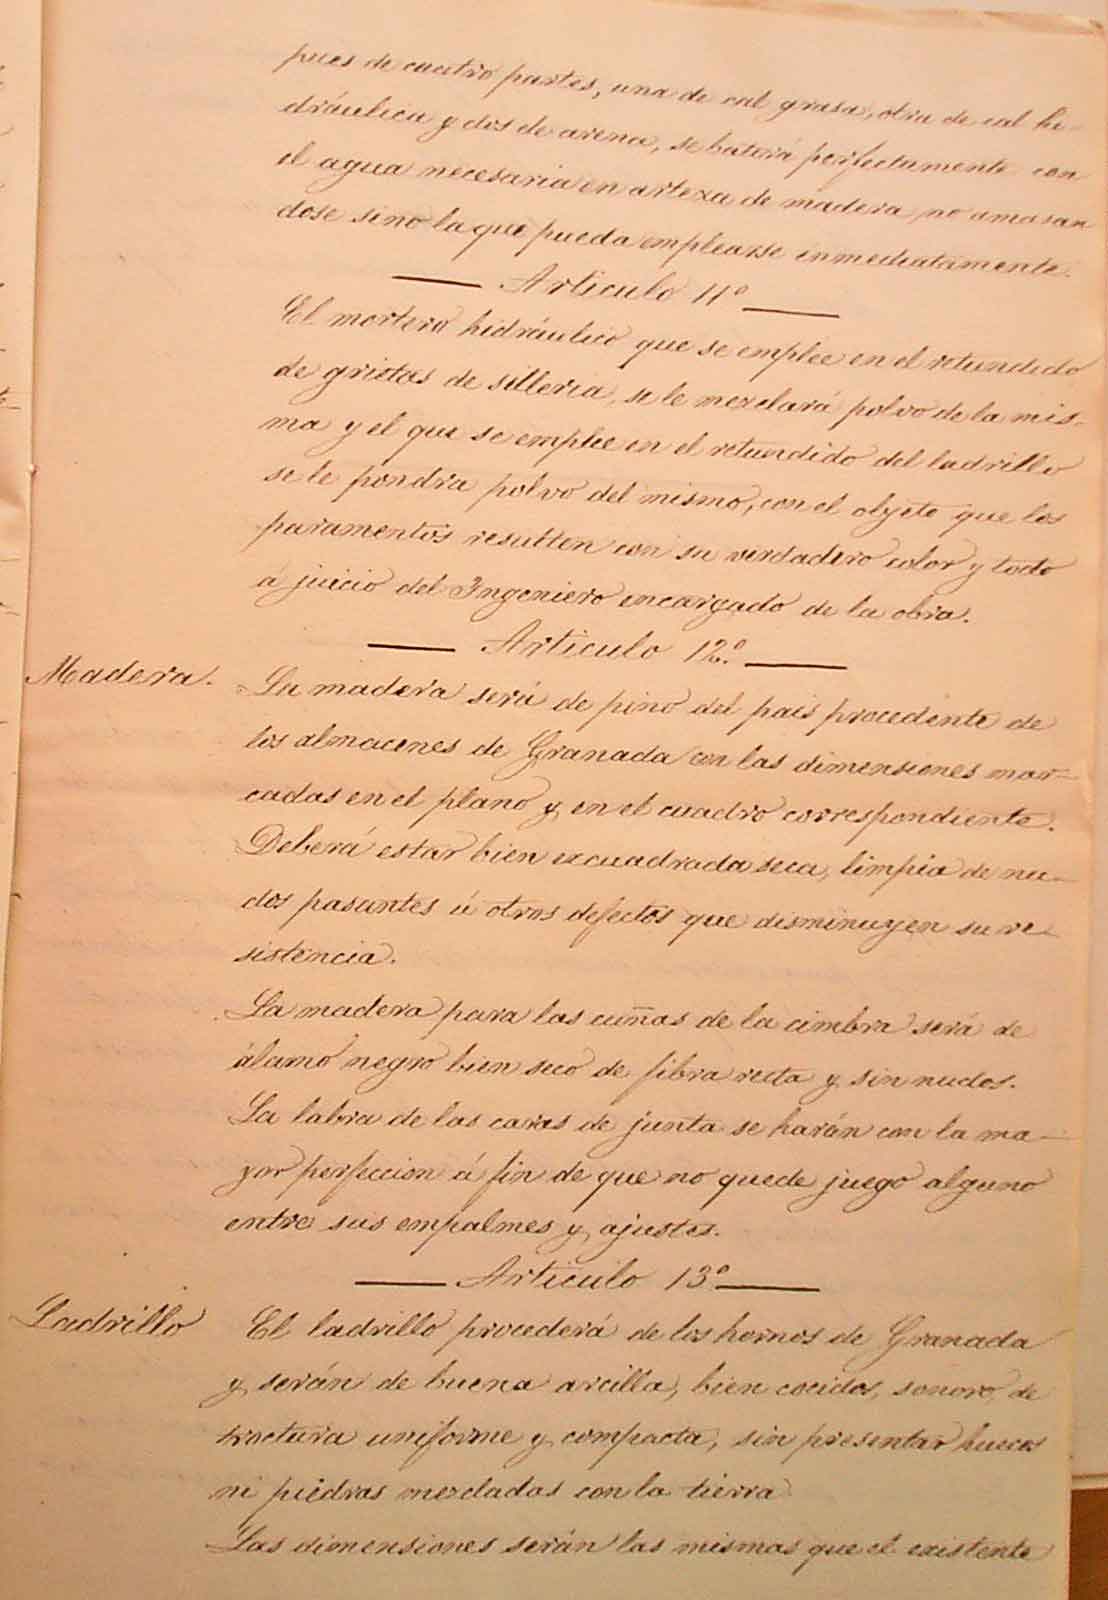 pues de cuatro partes, una de cal grasa, otra de cal hi-
dráulica y dos de arena, se batirá perfectamente con
el agua necesaria en arteza de madera no amasan
dose sino la que pueda emplearse inmediatamente.
Articulo 11º
El mortero hidráulico que se emplee en el retundido
de grietas de silleria, se le mezclará polvo de la mis-
ma y el que se emplee en el retundido del ladrillo
se le pondra polvo del mismo, con el objeto que los
paramentos resulten con su verdadero color y todo
á juicio del Ingeniero encargado de la obra.
Articulo 12.º
Madera.
La madera será de pino del pais procedente de
los almacenes de Granada con las dimensiones mar-
cadas en el plano y en el cuadro correspondiente.
Deberá estar bien escuadrada seca, limpia de nu-
dos pasantes ú otros defectos que disminuyen su re-
sistencia.
La madera para las cuñas de la cimbra será de
álamo negro bien seco de fibra recta y sin nudos.
La labra de las caras de junta se harán con la ma-
yor perfeccion á fin de que no quede juego alguno
entre sus empalmes y ajustes.
Articulo 13º
Ladrillo
El ladrillo procederá de los hornos de Granada
y serán de buena arcilla, bien cocidos, sonoro, de
fractura uniforme y compacta, sin presentar huecos
ni piedras mezcladas con la tierra
Las dimensiones serán las mismas que el existente